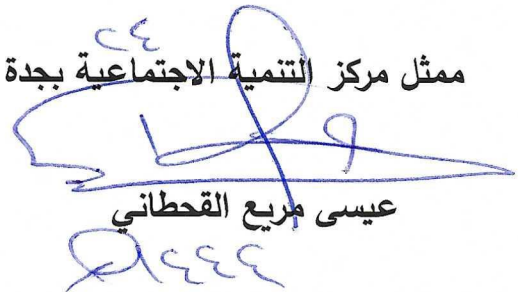 ممثل مركز التنمية الاجتماعية بجدة
عيسى مريع القحطاني